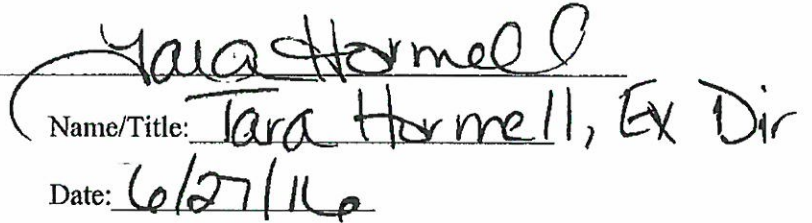 Tara Hormell
Name/Title: Tara Hormell, Ex Dir
Date: 6/27/16